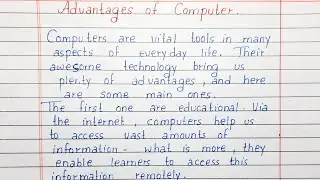 Advantages of Computer.
Computers are vital tools in many
aspects of everyday life. Their
awesome technology bring us
plenty of advantages, and here
are some main ones.
The first one are educational. Via
the internet, computers help us
to access vast amounts of
information. what is more, they
enable learners to access this
information remotely.